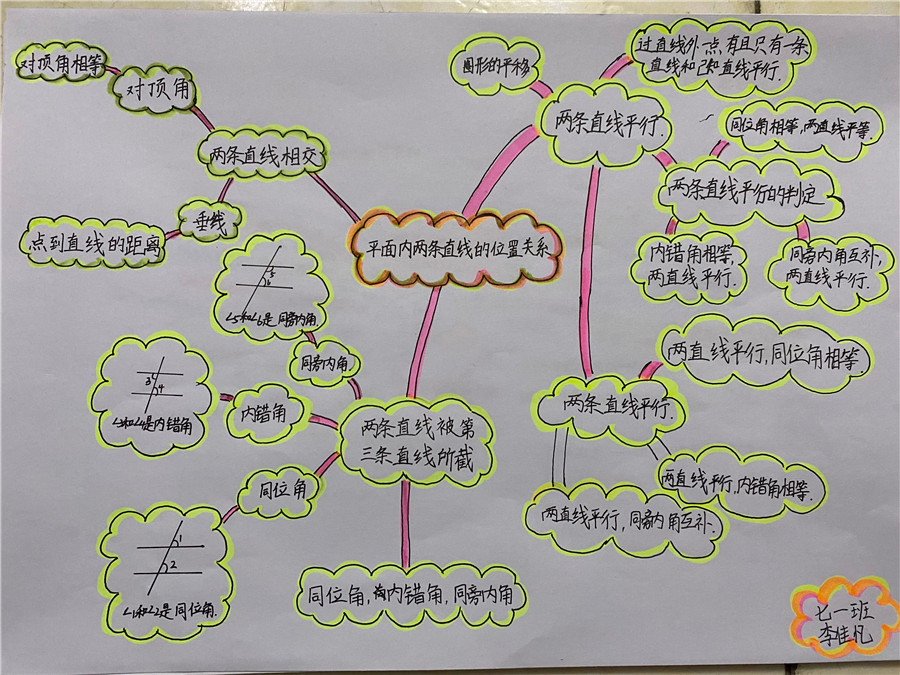 对顶角相等
对顶角
两条直线相交
垂线
点到直线的距离
平面内两条直线的位置关系
图形的平移
两条直线平行.
过直线外一点有且只有一条
直线和已知直线平行.
同位角相等,两直线平等.
两条直线平行的判定
内错角相等,
两直线平行.
同旁内角互补,
两直线平行.
两条直线平行.
两直线平行,同位角相等.
两直线平行,内错角相等.
两直线平行,同旁内角互补.
两条直线被第
三条直线所截
同旁内角.
5
6
∠5和∠6是同旁内角.
内错角
3
4
∠3和∠4是内错角
同位角
1
2
∠1和∠2是同位角.
同位角,内错角,同旁内角
七一班
李佳凡